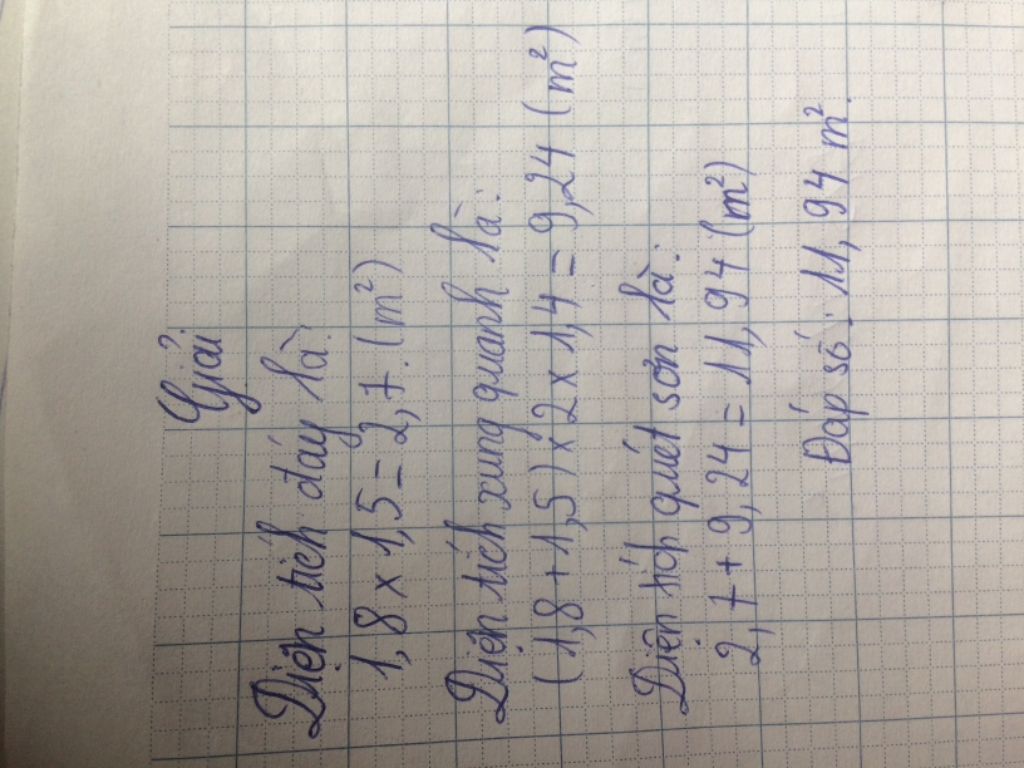 Giải
Diện tích đáy là:
1,8 x 1,5 = 2,7 (m²)
Diện tích xung quanh là:
(1,8 + 1,5) x 2 x 1,4 = 9,24 (m²)
Diện tích quét sơn là:
2,7 + 9,24 = 11,94 (m²)
Đáp số: 11,94 m².